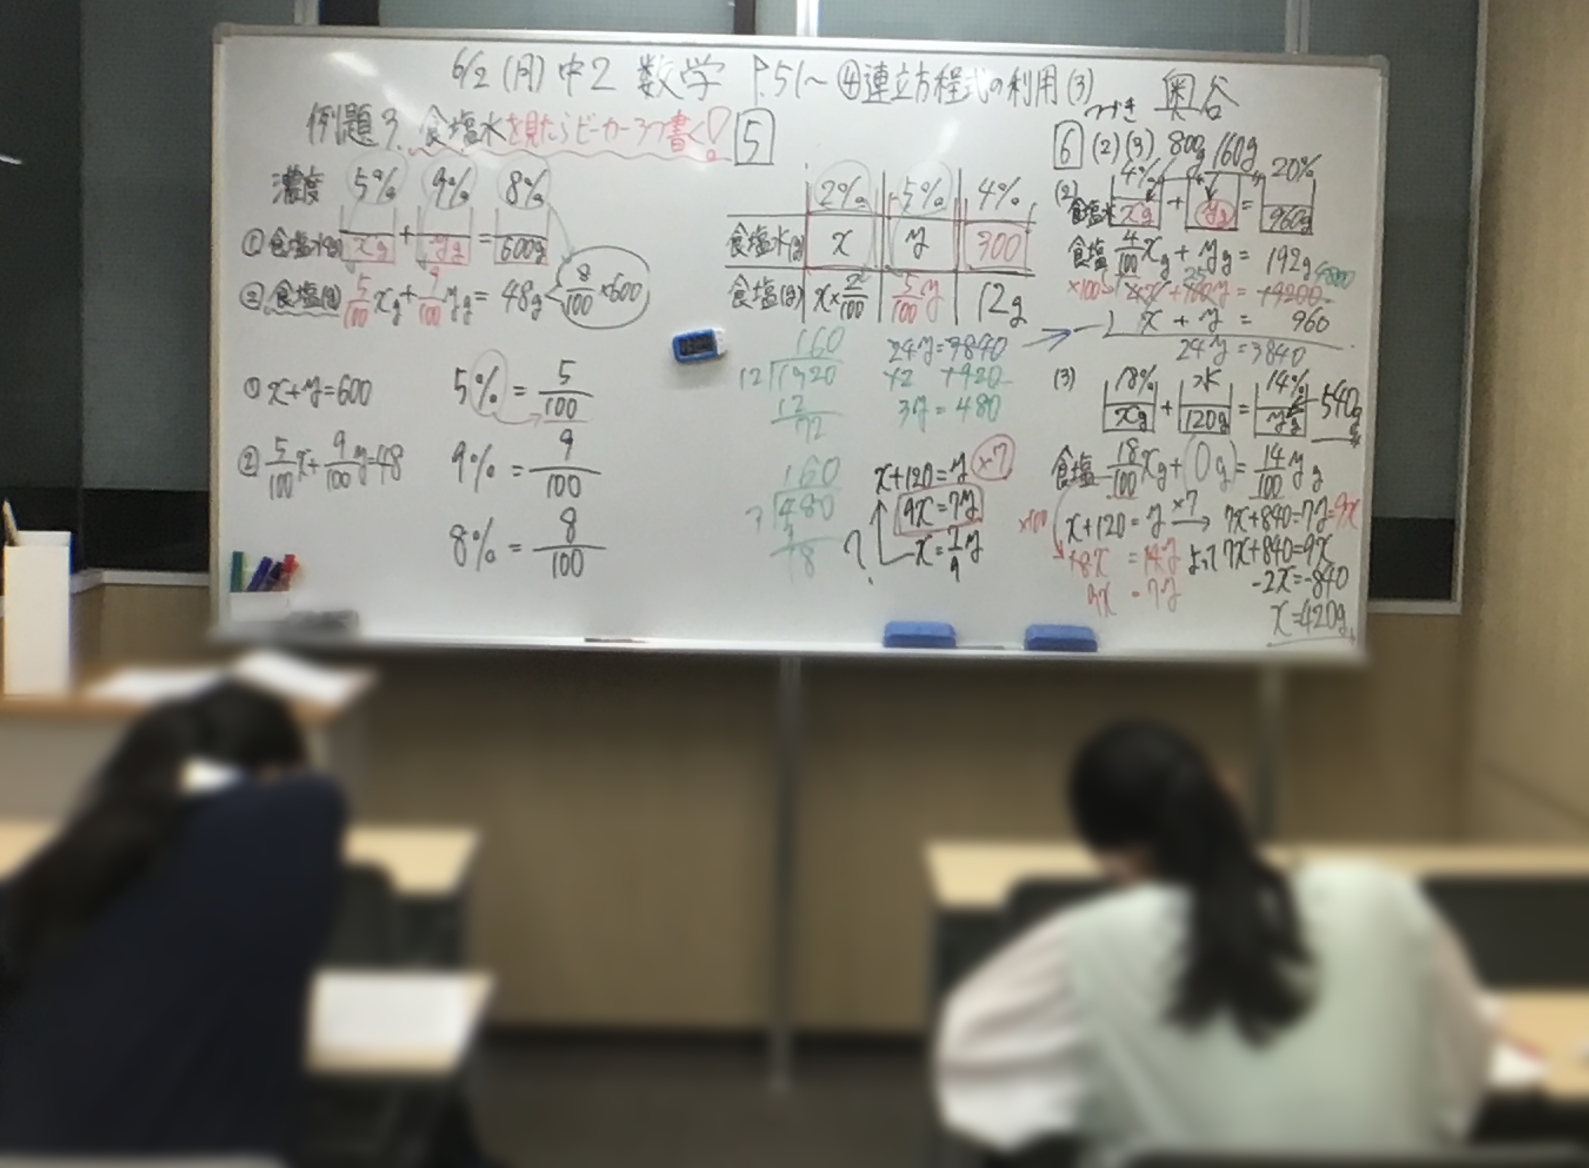 6/2 (月) 中2 数学 P.51~ ④連立方程式の利用(3) 奥谷
例題3. 食塩水を見たらビーカー3つ書く!
濃度 5% 9% 8%
①食塩水(g) xg + yg = 600g
②食塩(g) 5/100 xg + 9/100 yg = 48g 8/100 ×600
① x+y=600
② 5/100 x + 9/100 y = 48
5% = 5/100
9% = 9/100
8% = 8/100
5
2% 5% 4%
食塩水(g) x y 300
食塩(g) x×2/100 5/100 y 12g
160
12 1920
12
72
24y=3840
3y=480
160
3 480
3
18
x+120=y ×7
9x=7y
x=7/9 y
?
つづき
6 (2)(3) 80g 160g
(2) 4% 20%
食塩水 xg + yg = 960g
食塩 4/100 xg + yg = 192g
×100
x + y = 960
24y=3840
(3) 18% 水 14%
xg + 120g = yg 540g
食塩 18/100 xg + 0g = 14/100 yg
x+120=y ×7 → 7x+840=7y=9x
×100
18x = 14y よって 7x+840=9x
9x = 7y -2x=-840
x=420g